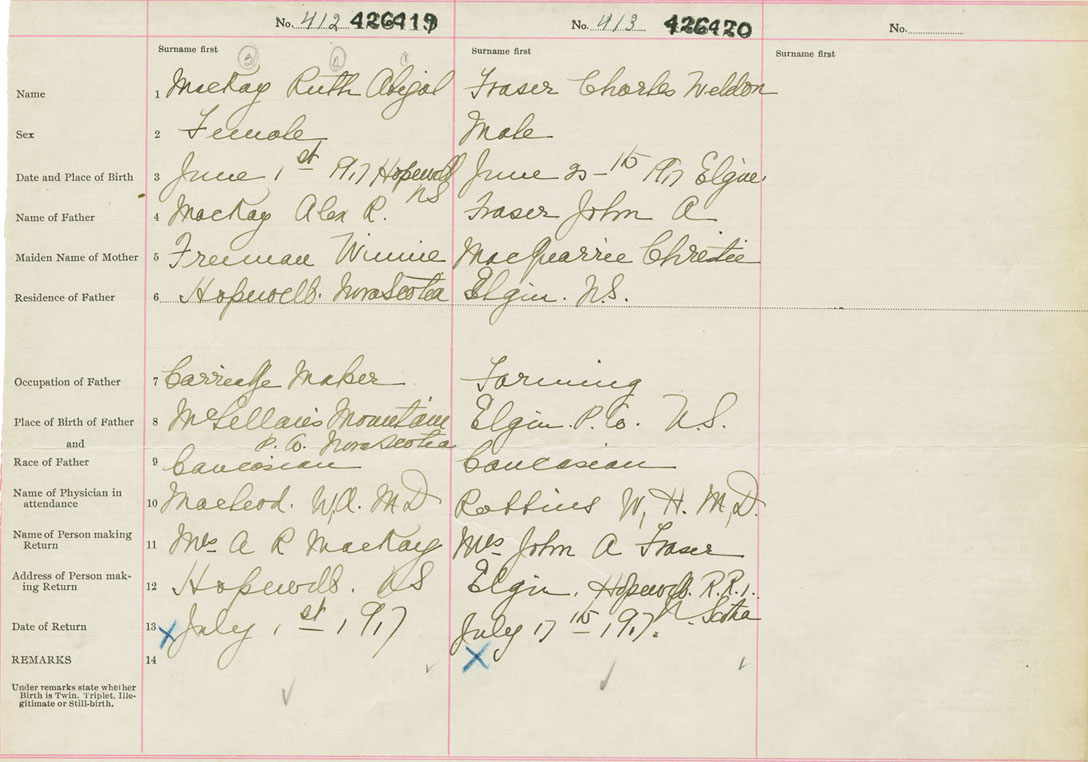 No. 412 426419 No. 413 426420 No.
Surname first Surname first Surname first
3 2 1
Name 1 MacKay Ruth Abigal Fraser Charles Weldon
Sex 2 Female Male
Date and Place of Birth 3 June 1st 1917 Hopewell NS June 25th 1917 Elgin
Name of Father 4 MacKay Alex R. Fraser John A
Maiden Name of Mother 5 Freeman Winnie MacQuarrie Christie
Residence of Father 6 Hopewell. Nova Scotia Elgin. N.S.
Occupation of Father 7 Carriage Maker Farming
Place of Birth of Father 8 McLellan's Mountain P. Co. Nova Scotia Elgin. P. Co. N.S.
and
Race of Father 9 Caucasian Caucasian
Name of Physician in
attendance 10 MacLeod. W.A. MD Robbins W. H. M.D.
Name of Person making
Return 11 Mrs A R MacKay Mrs John A Fraser
Address of Person mak-
ing Return 12 Hopewell. NS Elgin, Hopewell R.R.1. N. Scotia
Date of Return 13 X July 1st 1917 July 17th 1917.
REMARKS 14 X
Under remarks state whether
Birth is Twin, Triplet, Ille-
gitimate or Still-birth.